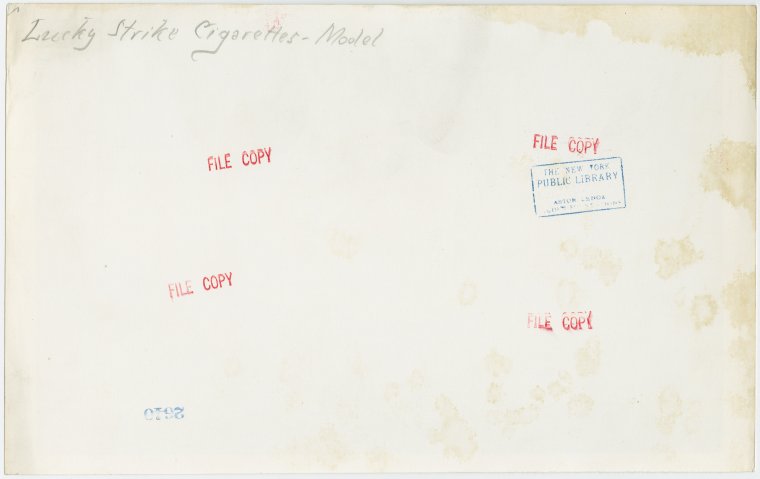 Lucky Strike Cigarettes - Model
FILE COPY
FILE COPY
THE NEW YORK
PUBLIC LIBRARY
ASTOR LENOX
FILE COPY
FILE COPY